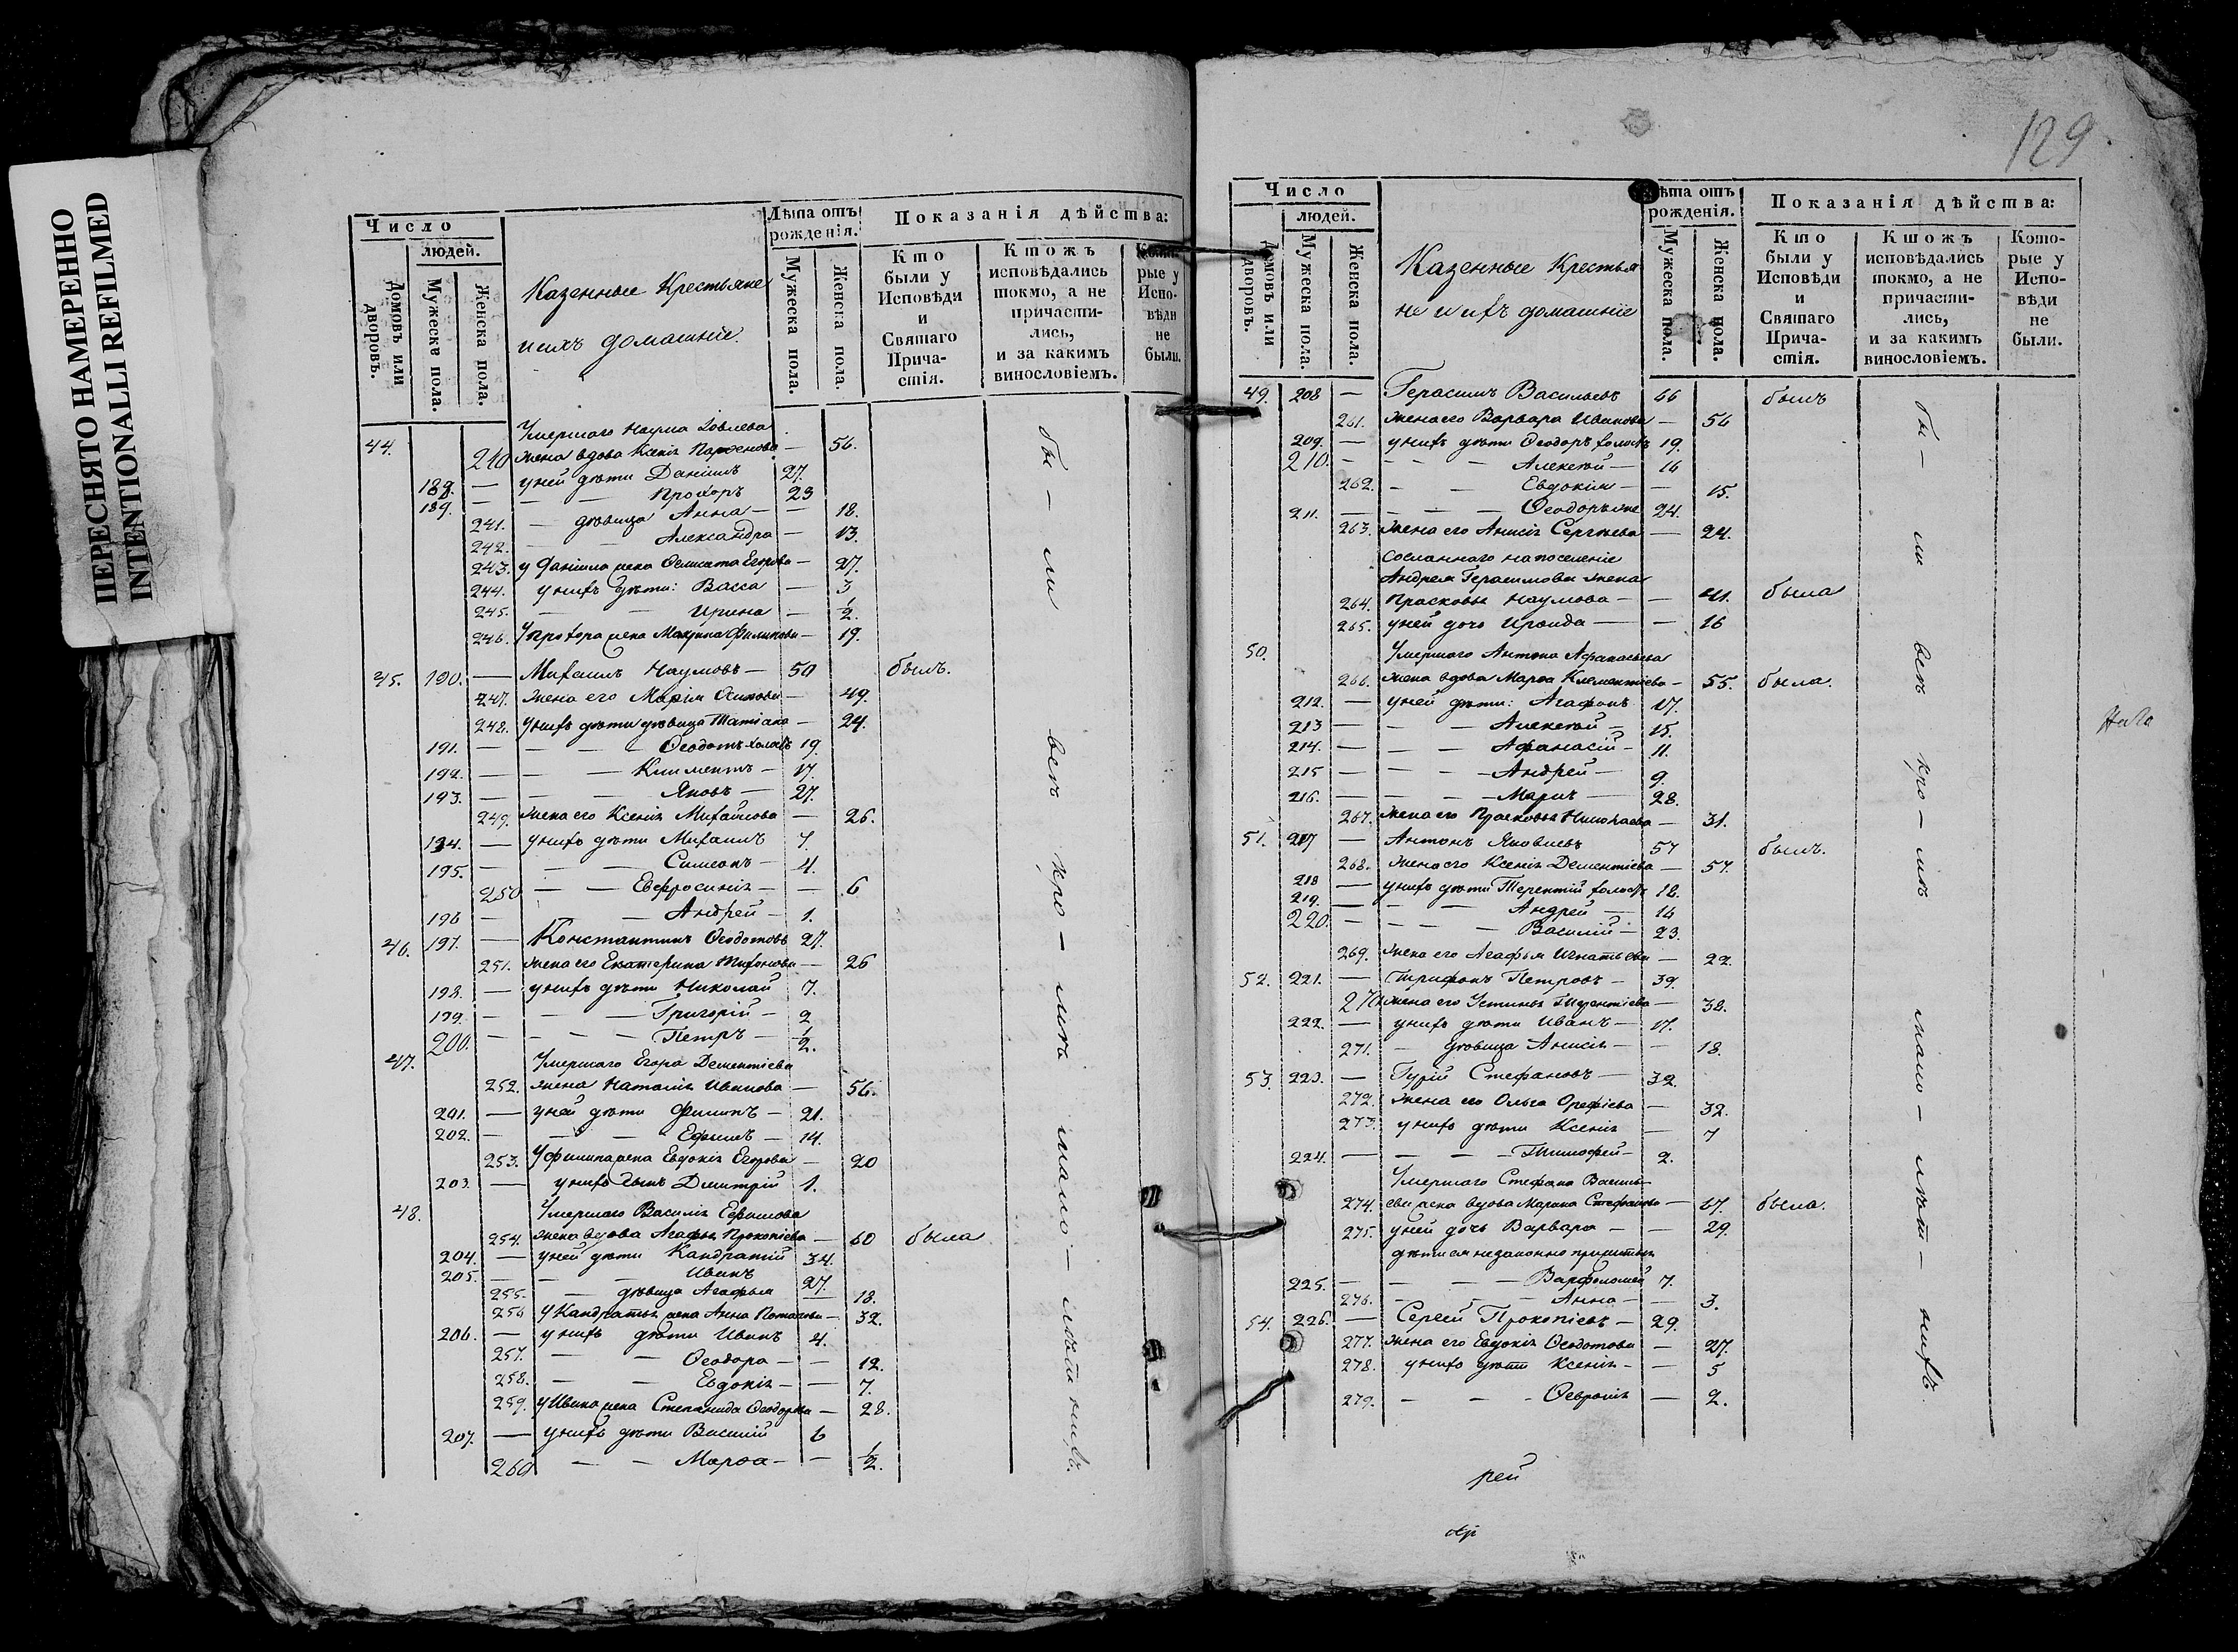 ПЕРЕСНЯТО НАМЕРЕННО
INTENTIONALLI REFILMED
Число
людей.
Домовъ или дворовъ.
Мужеска пола.
Женска пола.
Казенные Крестьяне
и ихъ домашніе.
Лѣта отъ рожденія.
Мужеска пола.
Женска пола.
Показанія дѣйства:
Кто были у Исповѣди и Святаго Прича-стія.
Ктожъ исповѣдались токмо, а не причасти-лись, и за какимъ винословіемъ.
Кото-рые у Испо-вѣди не были.
44. Умершаго Наума
240 жена вдова Ксенія Парѳенова — 56.
188. — у ней дѣти Даніилъ 27.
189. — — Прохоръ 23
241. — дѣвица Анна — — 18.
242. — — Александра — 13.
243. у Даніила жена Ѳелисата Егорова — 27.
244. у нихъ дѣти: Васса — 3
245. — — Ирина — 1/2.
246. У Прохора жена Марина Филипова — 19.
45. 190. — Михаилъ Наумовъ — 50 былъ.
247. жена его Марія Осипова — 49.
248. У нихъ дѣти дѣвица Татіана — 24.
191. — — — Ѳеодотъ холостъ 19.
192. — — — Климентъ — 17.
193. — — — Яковъ — 27.
249. жена его Ксенія Михайлова — 26.
194. — у нихъ дѣти Михаилъ 7.
195. — — — Симеонъ — 4.
250 — — Евфросинія — — 6
196 — — — Андрей — 1.
46. 197. — Константинъ Ѳеодотовъ 27.
251. жена его Екатерина Тихонова — 26
198. — у нихъ дѣти Николай 7.
199. — — — Григорій — 2
200. — — — Петръ — 1/2.
47. Умершаго Егора Дементіева
252. жена Наталія Иванова — 56.
201. — у ней дѣти Филипъ — 21.
202. — — — Ефимъ — 14.
253. У Филипа жена Евдокія Егорова — 20
203. — у нихъ сынъ Димитрій 1.
48. Умершаго Василія Ефимова
254. жена вдова Агафья Прокопіева — 60 была
204. — у ней дѣти Кандратій 34.
205. — — — Иванъ 27.
255. — дѣвица Агафья — 18.
256 У Кандратья жена Анна Потапова — 32.
206. — у нихъ дѣти Иванъ 4.
257. — — Ѳеодора — — 12.
258. — — Евдокія — — 7.
259. у Ивана жена Степанида Ѳеодорова — 28.
207. — у нихъ дѣти Василій 6
260 — — Марѳа — — 1/2.
бы — ли всѣ кро — мѣ мало — лѣтнихъ.
129
Число
людей.
Домовъ или дворовъ.
Мужеска пола.
Женска пола.
Казенные Крестья
не и ихъ домашніе
Лѣта отъ рожденія.
Мужеска пола.
Женска пола.
Показанія дѣйства:
Кто были у Исповѣди и Святаго Прича-стія.
Ктожъ исповѣдались токмо, а не причасти-лись, и за какимъ винословіемъ.
Кото-рые у Испо-вѣди не были.
49. 208 — Герасимъ Васильевъ 66 былъ
261. жена его Варвара Иванова — 56
209. — у нихъ дѣти Ѳеодоръ холостъ 19.
210. — — — Алексѣй — 16
262. — — Евдокія — — 15.
211. — — — — Ѳеодоръ же 24.
263. жена его Анисія Сергѣева — 24.
сосланнаго на поселеніе
Андрея Герасимова жена
264. Прасковья Наумова — — 41. была
265. у ней дочь Ираида — — 16
50. Умершаго Антона Афанасьева
266. жена вдова Марѳа Клементіева — 55. была.
212. — у ней дѣти: Агафонъ 17.
213 — — — Алексѣй — 15.
214. — — — Афанасій — 11.
215 — — — Андрей — 9.
216. — — — Маркъ — 28.
267. жена его Прасковья Николаева — 31.
51. 217 — Антонъ Яковлевъ 57 былъ.
268. жена его Ксенія Дементіева — 57.
218 — у нихъ дѣти Терентій холостъ 18.
219. — — — Андрей — 14
220. — — — Василій — 23.
269. жена его Агафья Игнатьева — 22.
52. 221. — Трифонъ Петровъ — 39.
270 жена его Устинья — 38.
222. — у нихъ дѣти Иванъ — 17.
271. — дѣвица Анисія — — 18.
53. 223. — Гурій Стефановъ — 32.
272. жена его Ольга Орефіева — 32.
273. у нихъ дѣти Ксенія — 7
224. — — — Тимофей — 2.
Умершаго Стефана Василь-
274. ева жена вдова Марина Стефанова — 67. была.
275. у ней дочь Варвара — — 29.
дѣти ея незаконно прижитыя
225. — — — Варфоломей 7.
276. — — — Анна — — 3.
54. 226. — Сергей Прокопіевъ — 29.
277. жена его Евдокія Ѳеодотова — 27.
278. у нихъ дѣти Ксенія — — 5
279. — — Ѳевронія — 2.
бы — ли всѣ кро — мѣ мало — лѣт — нихъ.
рей